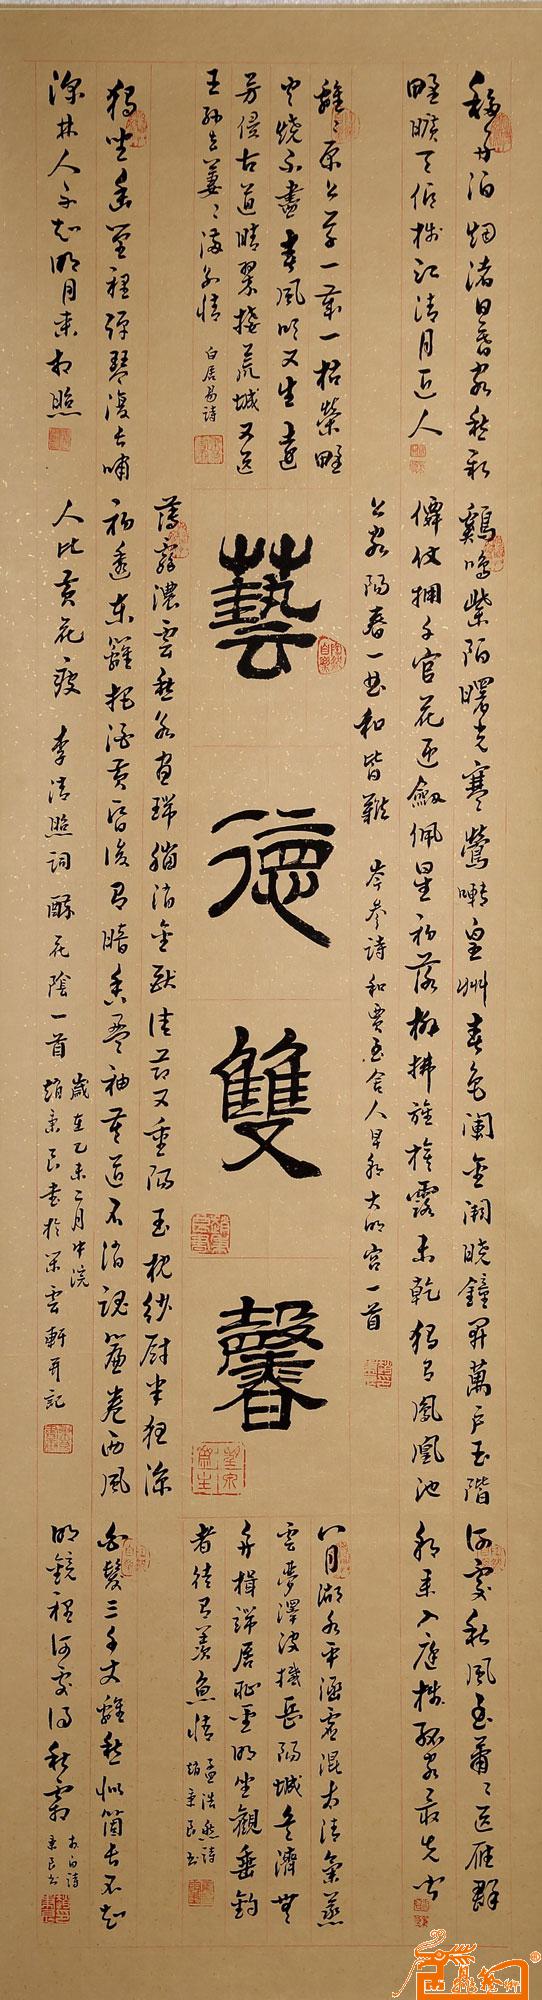 移舟泊烟渚日暮客愁新
野曠天低樹江清月近人
離々原上草一歲一枯榮野
火燒不盡春風吹又生遠
芳侵古道晴翠接荒城又送
王孫去萋々滿別情 白居易詩
獨坐幽篁裡彈琴復長嘯
深林人不知明月來相照
鷄鳴紫陌曙光寒鶯囀皇州春色闌金闕曉鐘開萬戶玉階
僊仗擁千官花迎劍佩星初落柳拂旌旗露未乾獨有鳳凰池
上客陽春一曲和皆難 岑參詩和賈至舍人早朝大明宮一首
藝德雙馨
薄霧濃雲愁永晝瑞腦消金獸佳節又重陽玉枕紗厨半夜涼
初透東籬把酒黃昏後有暗香盈袖莫道不消魂簾卷西風
人比黃花瘦 李清照詞醉花陰一首
歲在乙未二月中浣
趙秉良書於雲軒并記
何處秋風至蕭々送雁群
朝來入庭樹孤客最先聞
八月湖水平涵虛混太清氣蒸
雲夢澤波撼岳陽城欲濟無
舟楫端居恥聖明坐觀垂釣
者徒有羨魚情 孟浩然詩
趙秉良書
白髮三千丈離愁似箇長不知
明鏡裡何處得秋霜
李白詩
秉良書